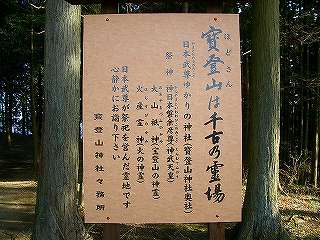 寶登山は千古の霊場
ほどさん
日本武尊ゆかりの神社(寶登山神社奥社)
祭神
神日本磐余彦尊(神武天皇)
大山祇神(寶登山の神霊)
火産霊神(火の神霊)
日本武尊が祭祀を営んだ霊地です
心静かにお詣り下さい
寶登山神社々務所